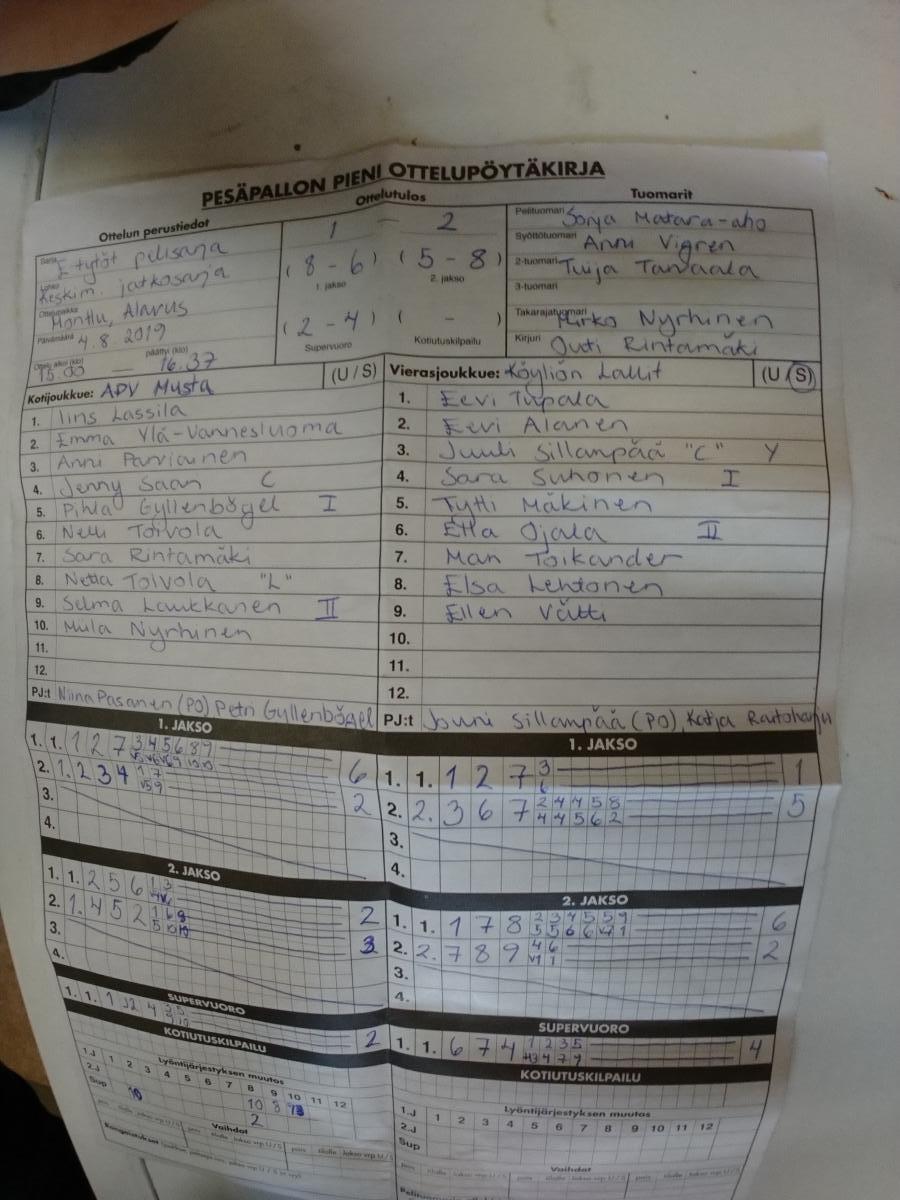 PESÄPALLON PIENI OTTELUPÖYTÄKIRJA
Ottelun perustiedot
Sarja E tytöt pelisarja
Lohko Keskim. jatkosarja
Ottelupaikka Monttu, Alavus
Päivämäärä 4.8.2019
Ottelu alkoi (klo) päättyi (klo)
15.00 — 16.37
Ottelutulos
1 — 2
(8 - 6) (5 - 8)
1. jakso 2. jakso
(2 - 4) ( - )
Supervuoro Kotiutuskilpailu
Tuomarit
Pelituomari Sonja Matara-aho
Syöttötuomari Anni Vigren
2-tuomari Tuija Tanvaala
3-tuomari
Takarajatuomari Mirko Nyrhinen
Kirjuri Outi Rintamäki
Kotijoukkue: APV Musta (U / S)
1. Iiris Lassila
2. Emma Ylä-Vannesluoma
3. Anni Parviainen
4. Jenny Saari C
5. Pihla Gyllenbögel I
6. Nelli Toivola
7. Sara Rintamäki
8. Netta Toivola "L"
9. Selma Laukkanen II
10. Nyrhinen
11.
12.
PJ:t Niina Pasanen (PO) Petri Gyllenbögel
Vierasjoukkue: Köyliön Lallit (U / S)
1. Eevi Tupala
2. Eevi Alanen
3. Juuli Sillanpää "C" Y
4. Sara Suhonen I
5. Tytti Mäkinen
6. Etla Ojala II
7. Mari Toikander
8. Elsa Lehtonen
9. Ellen Vätti
10.
11.
12.
PJ:t Jouni Sillanpää (PO), Katja Rautoharju
1. JAKSO
1. 1. 1 2 7 3 4 5 6 8 9 6
2. 1. 2 3 4 1 7 2
3.
4.
2. JAKSO
1. 1. 2 5 6 1 3 2
2. 1. 4 5 2 1 6 8 3
3.
4.
SUPERVUORO
1. 1. 2
KOTIUTUSKILPAILU
Lyöntijärjestyksen muutos
1.J 1 2 3 4 5 6 7 8 9 10 11 12
2.J 10 8
Sup 10 2
Vaihdot
1. JAKSO
1. 1. 1 2 7 3 1
6
2. 2. 3 6 7 2 4 4 5 8 5
4 4 5 6 2
3.
4.
2. JAKSO
1. 1. 1 7 8 2 3 4 5 5 9 6
2. 2. 7 8 9 4 6 2
3.
4.
SUPERVUORO
1. 1. 6 7 4 1 2 3 5 4
KOTIUTUSKILPAILU
Lyöntijärjestyksen muutos
1.J 1 2 3 4 5 6 7 8 9 10 11 12
2.J
Sup
Vaihdot